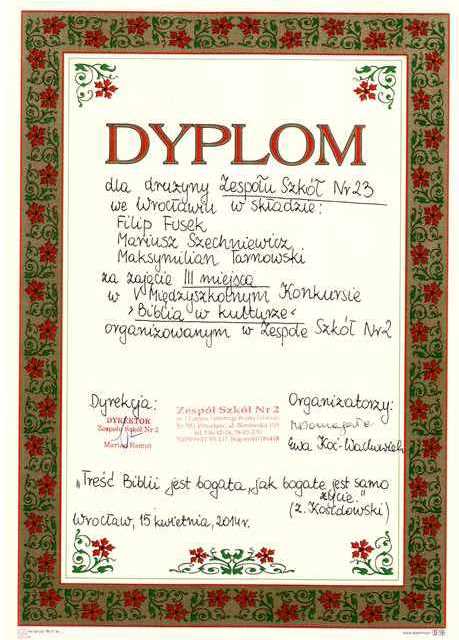 DYPLOM
dla drużyny Zespołu Szkół Nr 23
we Wrocławiu w składzie:
Filip Fusek
Mariusz Szechniewicz
Maksymilian Tarnowski
za zajęcie III miejsca
w V Międzyszkolnym Konkursie
"Biblia w kulturze"
organizowanym w Zespole Szkół Nr 2
Dyrekcja:
DYREKTOR
Zespołu Szkół Nr 2
Zespół Szkół Nr 2
Organizatorzy:
Ewa Koć-
"Treść Biblii jest bogata, jak bogate jest samo
życie."
(Z. Kosidowski)
Wrocław, 15 kwietnia, 2014r.